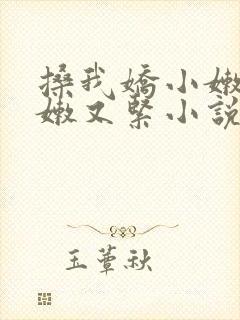 搡我嬌小嫩
嫩又緊小說
玉蕈秋